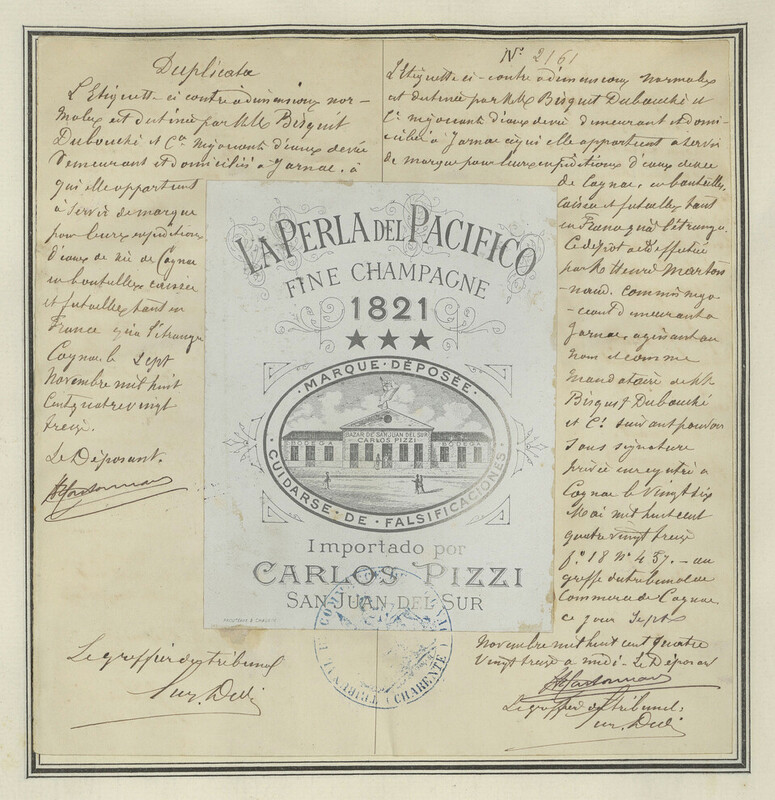 Duplicata
L'Etiquette ci contre à dimensions nor-
males est destinée par MM Bisquit
Dubouché et Cie Négociants d'eaux de vie
Demeurant et domiciliés à Jarnac, à
qui elle appartient
à servir de marque
pour leurs expéditions
d'eaux de vie de Cognac
en bouteilles caisses
et futailles tant en
France qu'à l'étranger
Cognac le Sept
Novembre mil huit
cent quatre vingt
treize.
Le Déposant.
Le greffier du tribunal
No 2161
L'Etiquette ci-contre à dimensions normales
est destinée par MM. Bisquit Dubouché et
Cie négociants d'eaux de vie demeurant et domi-
ciliés à Jarnac à qui elle appartient à servir
de marque pour leurs expéditions d'eaux de vie
de Cognac, en bouteilles,
caisses et futailles tant
en France qu'à l'étranger
Ce dépôt a été effectué
par M. Henri Marton-
naud, commis négo-
ciant demeurant à
Jarnac, agissant au
nom et comme
mandataire de MM
Bisquit Dubouché
et Cie suivant pouvoir
sous signature
privée enregistré à
Cognac le vingt six
Mai mil huit cent
quatre vingt treize
fo 18 No 457. - au
greffe du tribunal de
Commerce de Cognac
ce jour Sept
Novembre mil huit cent quatre
vingt treize à midi - Le Déposant
Le greffier du tribunal:
LA PERLA DEL PACIFICO
FINE CHAMPAGNE
1821
★★★
· MARQUE · DÉPOSÉE ·
BAZAR DE SAN JUAN DEL SUR
CARLOS PIZZI
BODEGA BODEGA
CUIDARSE · DE · FALSIFICACIONES
Importado por
CARLOS PIZZI
SAN JUAN DEL SUR
TRIBUNAL DE COMMERCE
(CHARENTE)